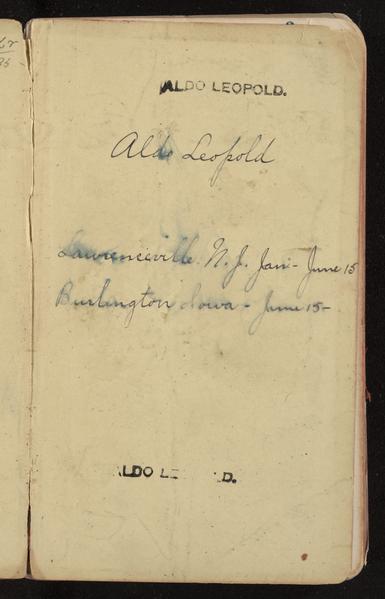 ALDO LEOPOLD.
Aldo Leopold
Lawrenceville N.J. Jan - June 15
Burlington Iowa - June 15 -
ALDO